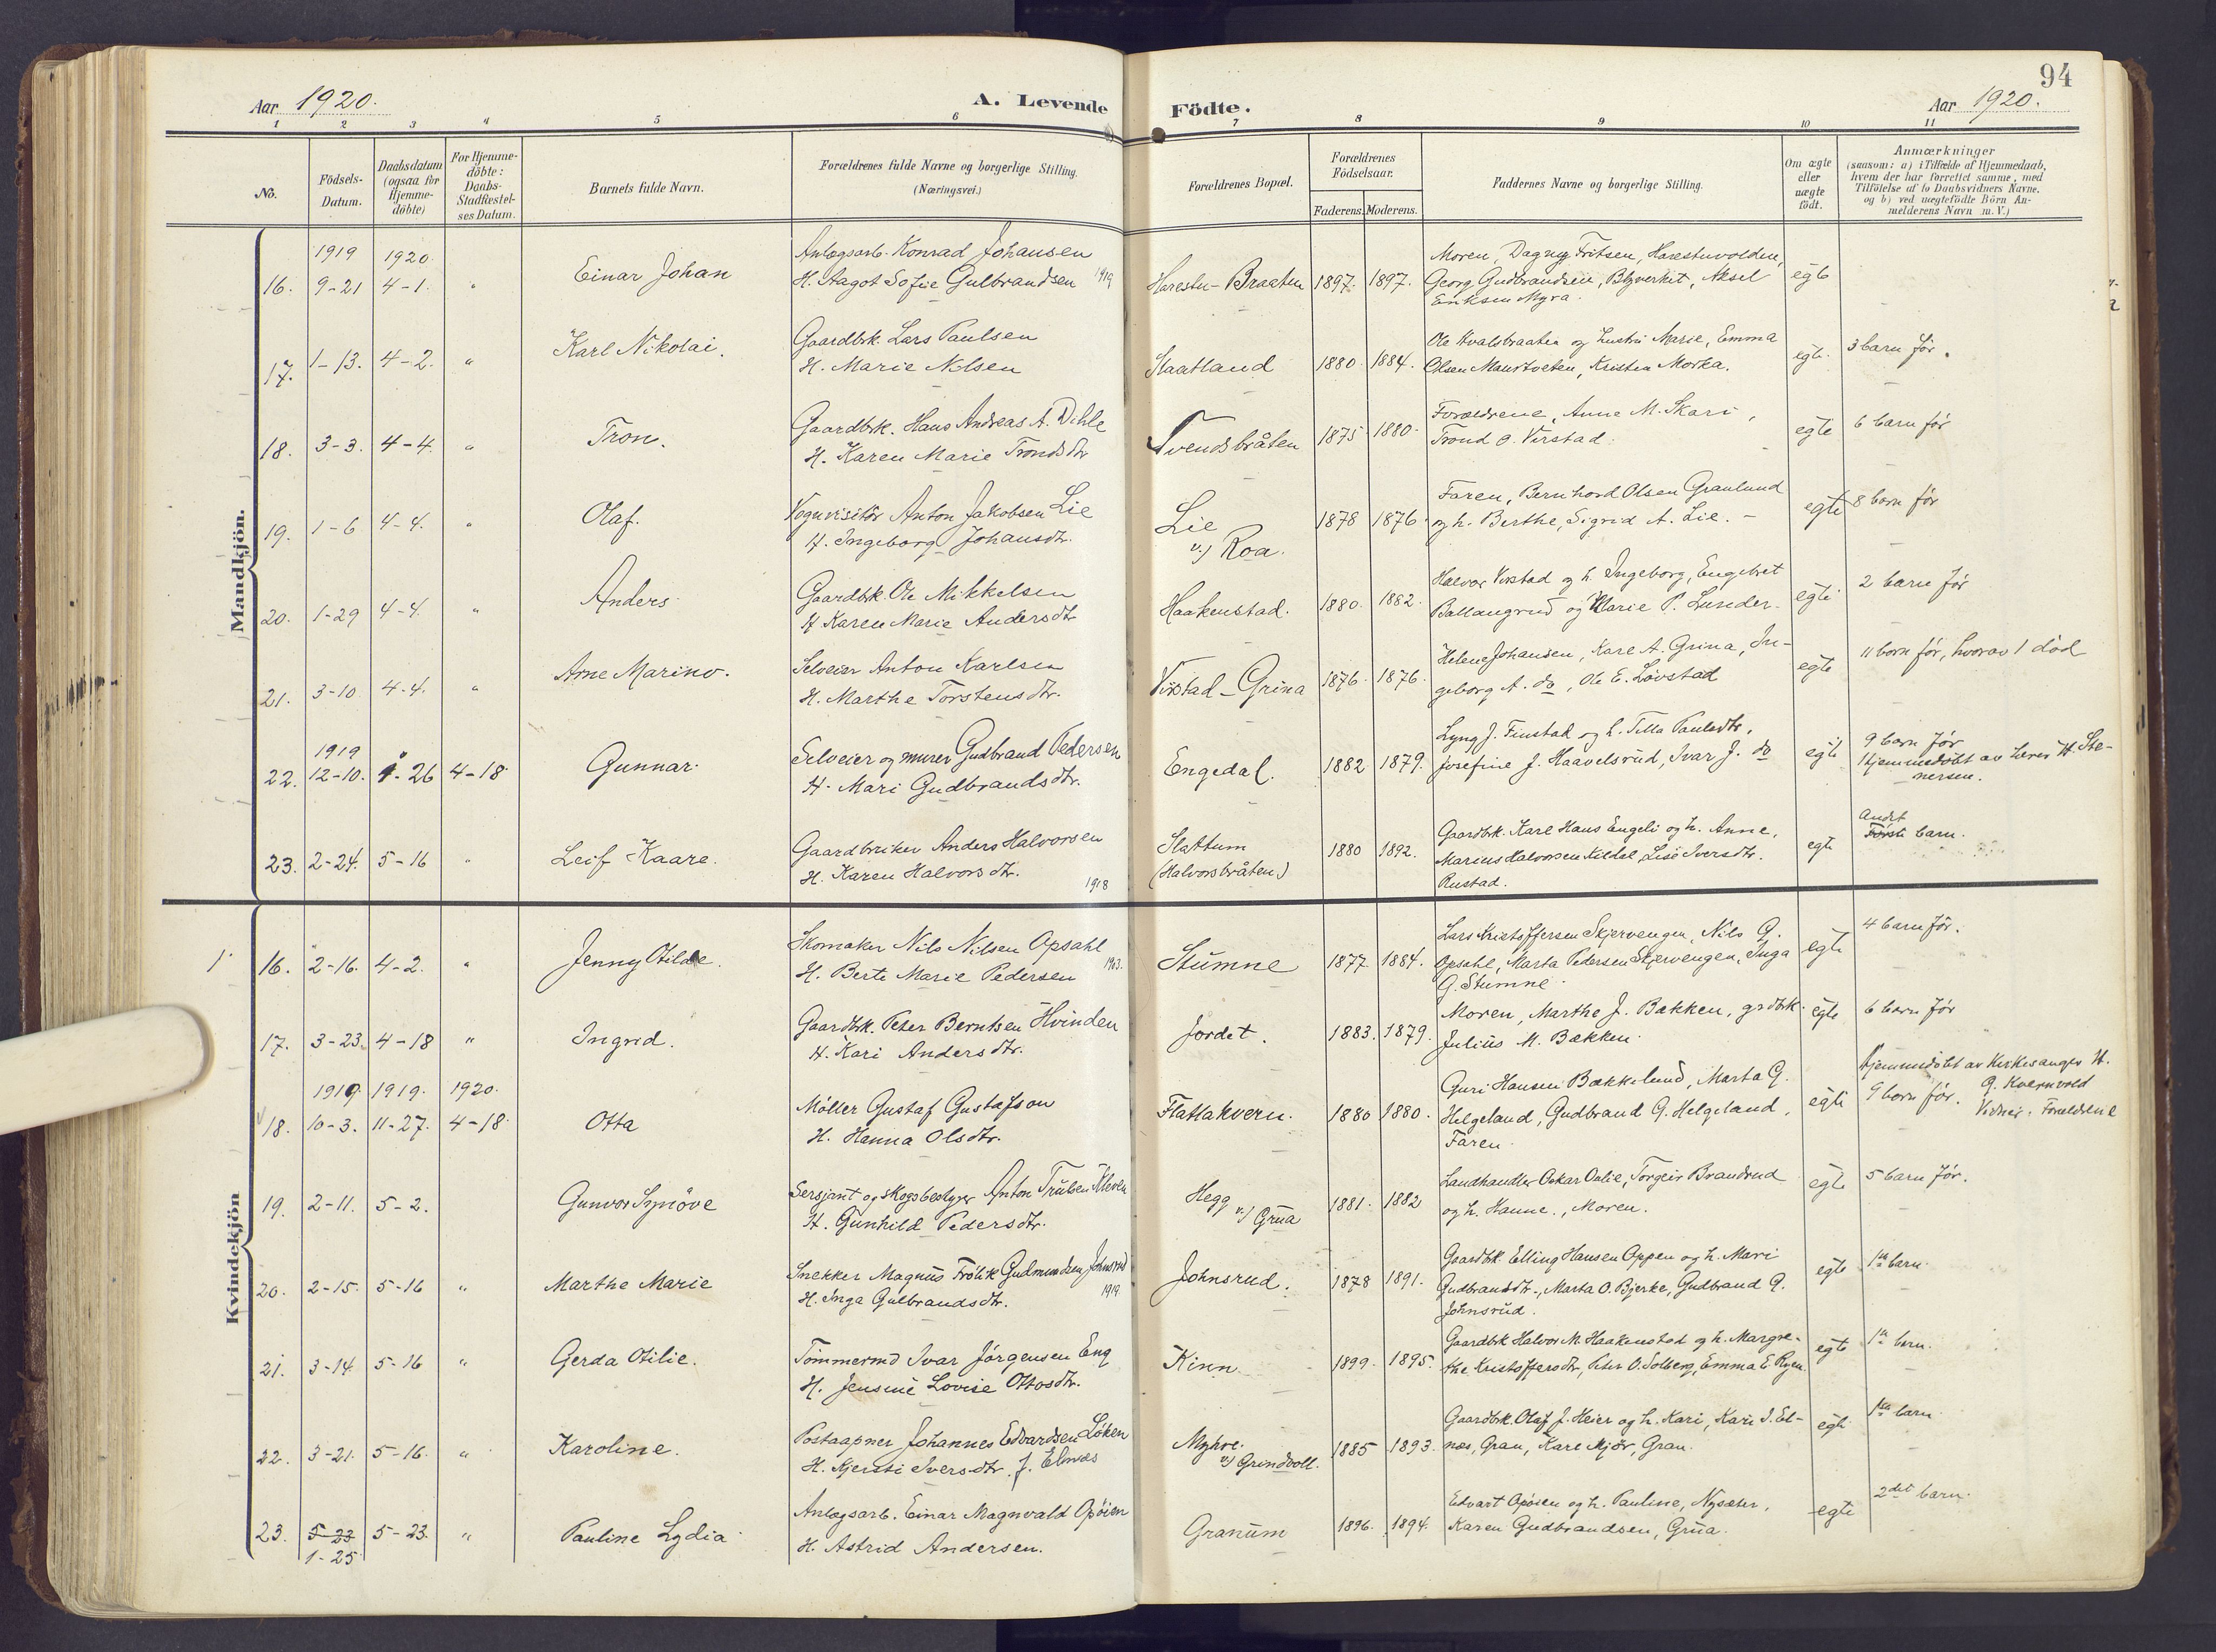 94
Aar 1920.
A. Levende Födte.
Aar 1920.
1 2 3 4 5 6 7 8 9 10 11
No.
Födsels-Datum.
Daabsdatum (ogsaa for Hjemme-döbte)
For Hjemme-döbte: Daabs-Stadfæstel-ses Datum.
Barnets fulde Navn.
Forældrenes fulde Navne og borgerlige Stilling. (Næringsvei.)
Forældrenes Bopæl.
Forældrenes Födselsaar.
Faderens. Moderens.
Faddernes Navne og borgerlige Stilling.
Om ægte eller uægte födt.
Anmærkninger
(saasom: a) i Tilfælde af Hjemmedaab,
hvem der har forrettet samme, med
Tilföielse af to Daabsvidners Navne.
og b) ved uægtefödte Börn An-
melderens Navn m. V.)
Mandkjön.
16. 1919 9-21 1920 4-1. " Einar Johan
Anlægsarb. Konrad Johansen
H. Aagot Sofie Gulbrandsen 1919
Harestu-Braaten 1897. 1897.
Moren, Dagny Fritsen, Harestuvolden,
Georg Gudbrandsen, Blyverket, Aksel
Eriksen Myra.
egte
17. 1-13. 4-2. " Karl Nikolai.
Gaardbrk. Lars Paulsen
H. Marie Nelsen
Staatland 1880 1884.
Ole Hvalsbraaten og hustru Marie, Emma
Olsen Maurtveten, Kristen Morka.
egte. 3 barn før.
18. 3-3. 4-4. " Tron.
Gaardbrk. Hans Andreas A. Dihle
H. Karen Marie Tronds dtr
Svendsbråten 1875 1880.
Forældrene, Anne M. Skari,
Trond O. Virstad.
egte 6 barn før
19. 1-6 4-4. " Olaf.
Vognvisitør Anton Jakobsen Lie
H. Ingeborg Johansdtr.
Lie
v/ Roa. 1878 1876
Faren, Bernhard Olsen Granlund
og h. Berthe, Sigrid A. Lie. -
egte 8 barn før
20. 1-29 4-4. " Anders.
Gaardbrk. Ole Mikkelsen
H Karen Marie Andersdtr
Haakenstad. 1880. 1882.
Halvor Virstad og h. Ingeborg, Engebret
Ballangrud og Marie P. Lunder.
egte 2 barn før
21. 3-10. 4-4. " Arne Marino.
Selveier Anton Karlsen
H. Marthe Torstens dtr.
Virstad-Grina 1876. 1876.
Helene Johansen, Kare A. Grina, In-
geborg A. do, Ole E. Løvstad
egte 11 barn før, hvorav 1 død
22. 1919 12-10. 1-26 4-18 Gunnar.
Selveier og murer Gudbrand Pedersen
H. Mari Gudbrandsdtr.
Engedal. 1882 1879.
Lyng J. Finstad og h. Tilla Paulsdtr,
Josefine J. Haavelsrud, Ivar J. do
egte 9 barn før
Hjemmedøbt av lærer H. Ste-
nersen.
23. 2-24. 5-16 " Leif Kaare.
Gaardbruker Anders Halvorsen
H. Karen Halvors dtr. 1918
Slattum
(Halvorsbråten) 1880 1892.
Gaardbrk. Karl Hans Engeli og h. Anne,
Marius Halvorsen Kildal, Lise Iversdtr.
Rustad.
egte Andet
Første barn.
Kvindekjön
16. 2-16. 4-2. " Jenny Otilde.
Skomaker Nils Nilsen Opsahl
H. Berte Marie Pedersen 1903.
Stumne 1877 1884.
Lars Kristoffersen Skjervengen, Nils G.
Opsahl, Marta Pedersen Skjervengen, Inga
G. Stumne.
egte 4 barn før.
17. 3-23. 4-18 " Ingrid.
Gaardbrk. Peter Berntsen Hvinden
H. Kari Anders dtr.
Jordet. 1883. 1879.
Moren, Marthe J. Bakken, grdbrk.
Julius M. Bakken.
egte 6 barn før
18. 1919. 10-3. 1919. 11-27. 1920. 4-18. Otta
Møller Gustaf Gustafson
H. Hanna Olsdtr.
Flattakvern. 1880 1880.
Guri Hansen Bækkelund, Marta G.
Helgeland, Gudbrand G. Helgeland,
Faren.
egte Hjemmedøbt av kirkesanger H.
G. Kvernvold
9 barn før. Vidner: Forældrene
19. 2-11. 5-2. Gunvor Synöve
Sersjant og skogsbestyrer Anton Trulsen Kleven
H. Gunhild Pedersdtr.
Hegg
v/ Grua 1881. 1882
Landhandler Oskar Oulie, Torgeir Brandrud
og h. Hanne., Moren.
egte 5 barn før.
20. 2-15. 5-16 " Marthe Marie
Snekker Magnus Frölik Gudmundsen Johnsrud
H. Inga Gulbrandsdtr. 1919.
Johnsrud. 1878 1891.
Gaardbrk. Elling Hansen Oppen og h. Mari
Gudbrandsdtr., Marta O. Bjerke, Gudbrand G.
Johnsrud.
egte 1ste barn.
21. 3-14 5-16 " Gerda Otilie.
Tömmermd Ivar Jörgensen Eng
H. Jensine Lovise Ottosdtr.
Kinn. 1899. 1895.
Gaardbrk Halvor M. Haakenstad og h. Margre-
the Kristoffersdtr, Peter O. Solberg, Emma E. Ryen.
egte 1ste barn.
22. 3-21. 5-16. " Karoline.
Postaapner Johannes Edvardsen Løken
H. Kjersti Iversdtr. f. Elnæs
Myhre.
v/ Grindvoll. 1885 1893.
Gaardbrk. Olaf J. Heier og h. Kari, Kari I. El-
næs, Gran, Kare Mjör, Gran.
egte 1ste barn.
23. 5-23 1-25 5-23. " Pauline Lydia
Anlægsarb. Einar Magnvald Opöien
H. Astrid Andersen.
Granum 1896. 1894.
Edvart Opöien og h. Pauline, Nysæter,
Karen Gudbrandsen, Grua.
egte 2det barn.